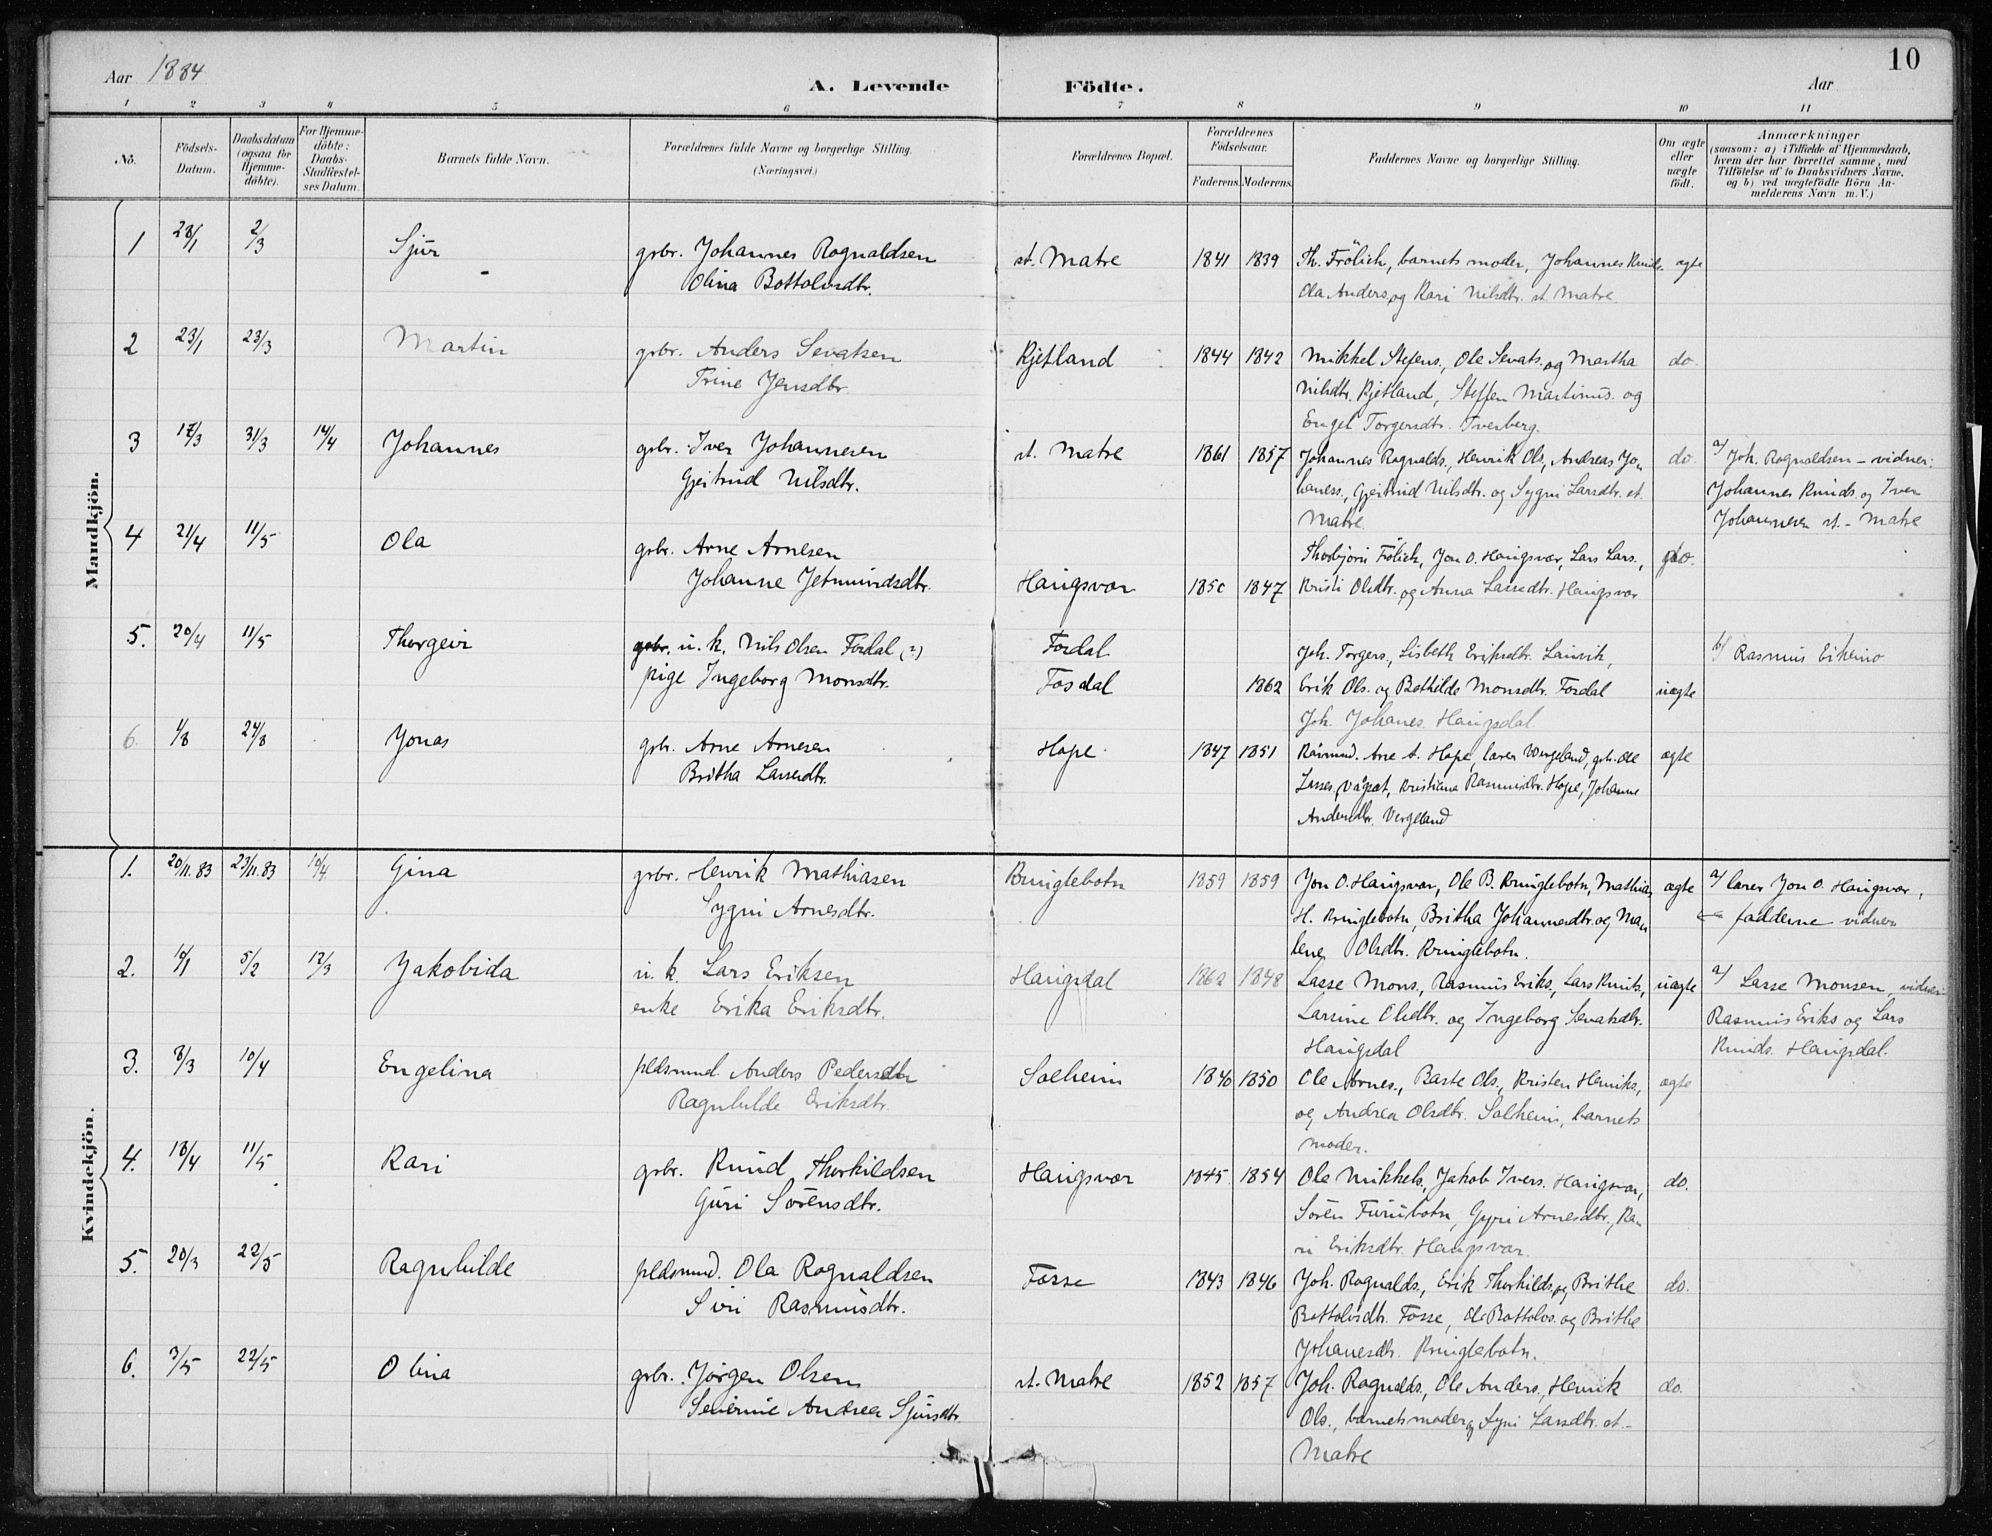 10
Aar 1884
A. Levende
Födte.
Aar
1 2 3 4 5 6 7 8 9 10 11
No.
Födsels-
Datum.
Daabsdatum
(ogsaa for
Hjemme-
döbte).
For Hjemme-
döbte:
Daabs-
Stadfæstel-
ses Datum.
Barnets fulde Navn.
Forældrenes fulde Navne og borgerlige Stilling.
(Næringsvei.)
Forældrenes Bopæl.
Forældrenes
Födselsaar.
Faderens. Moderens.
Faddernes Navne og borgerlige Stilling.
Om ægte
eller
uægte
født.
Anmærkninger
(saasom: a) i Tilfælde af Hjemmedaab,
hvem der har forrettet samme, med
Tilföielse af to Daabsvidners Navne,
og b) ved uægtefödte Börn An-
melderens Navn m. V.)
Mandkjön.
1 28/1 2/3 Sjur grbr. Johannes Rognaldsen st. Matre 1841 1839 Th. Frölich, barnets moder, Johannes Knuds. ægte
Olina Bottolvsdtr. Ola Anders. og Kari Nilsdtr. st. Matre
2 23/1 23/3 Martin grbr. Anders Sevatsen Kjetland 1844 1842 Mikkel Stefens., Ole Sevats. og Martha do.
Trine Jensdtr. Nilsdtr. Kjetland, Steffen Martinus. og
Engel Torgersdtr. Tverberg.
3 17/3 31/3 14/4 Johannes grbr. Iver Johannesen st. Matre 1861 1857 Johannes Rognalds., Henrik Ols., Andreas Jo- do. a/ Joh. Rognaldsen – vidner:
Gjertrud Nilsdtr. haness., Gjertrud Nilsdtr. og Sygni Larsdtr. st. Johannes Knuds. og Iver
Matre. Johannesen st. – Matre
4 21/4 11/5 Ola grbr. Arne Arnesen Thorbjørn Frölich, Jon O. Haugsvær, Lars Lars., do.
Johanne Jetmundsdtr. Haugsvær 1850 1847 Kristi Olsdtr. og Anna Lassedtr. Haugsvær
5. 20/4 11/5 Thorgeir grbr. u. k. Nils Olsen Fosdal (2) Fosdal Joh. Torgers., Lisbeth Eriksdtr. Lauvik, b/ Rasmus Eikemo
pige Ingeborg Monsdtr. Fosdal 1862 Erik Ols. og Bothilde Monsdtr. Fosdal uægte
Joh. Johanes. Haugsdal
6. 1/8 24/8 Jonas grbr. Arne Arnesen Hope 1847 1851 Arne A. Hope, lærer Vergeland, grbr. Ole ægte
Britha Lassedtr. Lasses. Kristiane Rasmusdtr. Hope, Johanne
Andersdtr. Vergeland
Kvindekjön.
1. 20/11.83 23/11.83 10/4 Gina grbr. Henrik Mathiasen Kringlebotn 1859 1859 Jon O. Haugsvær, Ole B. Kringlebotn, Mathias ægte a/ lærer Jon O. Haugsvær,
Sygni Arnesdtr. H. Kringlebotn, Britha Johannesdtr. og Mag fadderne vidner
lene Olsdtr. Kringlebotn.
2. 10/1 5/2 12/3 Jakobida u. k. Lars Eriksen Haugsdal 1862 1848 Lasse Mons., Rasmus Eriks., Lars Knuts., uægte a/ Lasse Monsen, vidner:
enke Erika Eriksdtr. Larsine Olsdtr. og Ingeborg Sevatsdtr. Rasmus Eriks og Lars
Haugsdal Knuds. Haugsdal.
3. 8/3 10/4 Engelina pldsmnd. Anders Pedersen Solheim 1840 1850 Ole Arnes., Baste Ols., Kristen Henriks., ægte
Ragnhilde Eriksdtr. og Andrea Olsdtr. Solheim, barnets
moder.
4. 18/4 11/5 Kari grbr. Knud Thorkildsen Haugsvær 1845 1854 Ole Mikkels., Jakob Ivers. Haugsvær, do.
Guri Sörensdtr. Sören Furubotn, Gyri Arnesdtr., Ka-
ri Eriksdtr. Haugsvær.
5. 20/3 22/5 Ragnhilde pldsmnd. Ola Rognaldsen Fosse 1843 1846 Joh. Rognalds., Erik Thorkilds. og Brithe do.
Siri Rasmusdtr. Bottolvsdtr. Fosse, Ole Bottolvs. og Brithe
Johanesdtr. Kringlebotn.
6. 3/5 22/5 Olina grbr. Jörgen Olsen st. Matre 1852 1857 Joh. Rognalds., Ole Anders., Henrik do.
Severine Andrea Sjursdtr. Ols., barnets moder og Syni Larsdtr. st. –
Matre